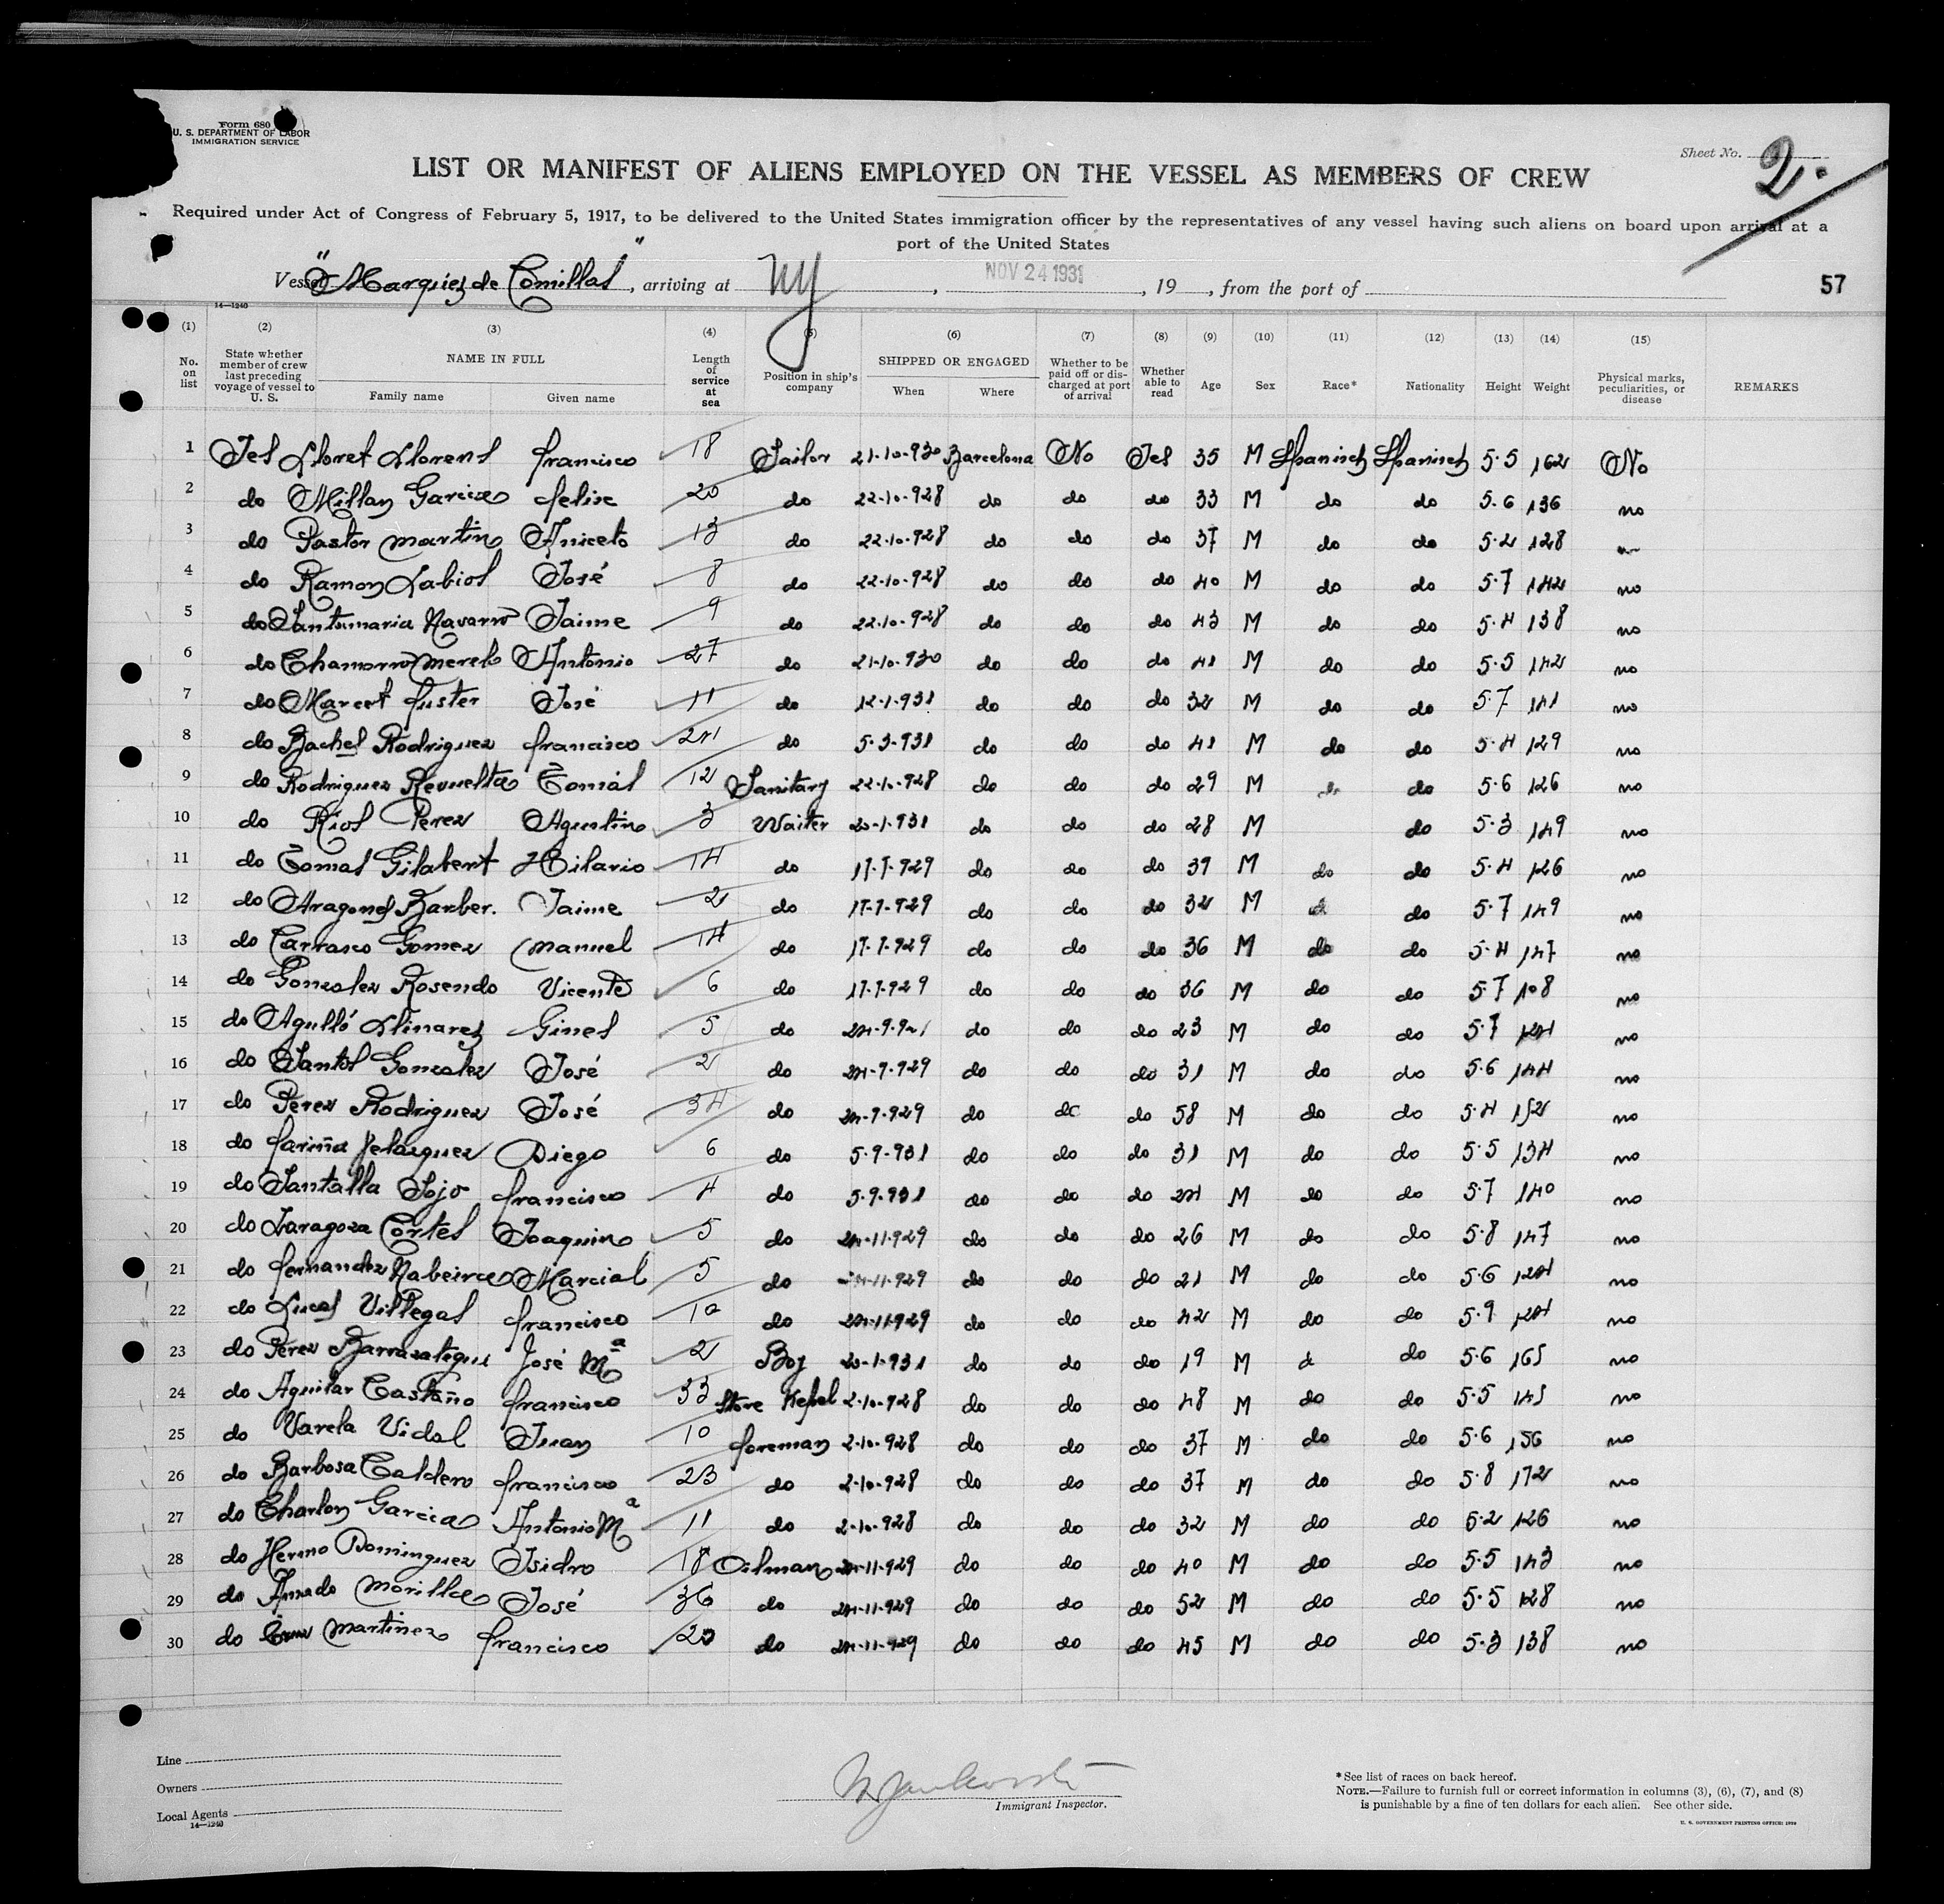 Form 680
U. S. DEPARTMENT OF LABOR
IMMIGRATION SERVICE
Sheet No. 2.
LIST OR MANIFEST OF ALIENS EMPLOYED ON THE VESSEL AS MEMBERS OF CREW
Required under Act of Congress of February 5, 1917, to be delivered to the United States immigration officer by the representatives of any vessel having such aliens on board upon arrival at a
port of the United States
Vessel "Marquéz de Comillas", arriving at NY, NOV 24 1931, 19, from the port of
57
14—1240
(1) (2) (3) (4) (5) (6) (7) (8) (9) (10) (11) (12) (13) (14) (15)
No. on list State whether member of crew last preceding voyage of vessel to U. S. NAME IN FULL Family name Given name Length of service at sea Position in ship's company SHIPPED OR ENGAGED When Where Whether to be paid off or discharged at port of arrival Whether able to read Age Sex Race* Nationality Height Weight Physical marks, peculiarities, or disease REMARKS
1 Jes Lloret Llorens francisco 18 Sailor 21-10-930 Barcelona No Jes 35 M Spanisch Spanisch 5.5 162 No
2 do Millan Garcia felix 20 do 22-10-928 do do do 33 M do do 5.6 136 no
3 do Pastor Martin Aniceto 13 do 22-10-928 do do do 37 M do do 5.2 128
4 do Ramon Labiol José 8 do 22-10-928 do do do 40 M do do 5.7 142 no
5 do Santamaria Navarro Jaime 9 do 22-10-928 do do do 43 M do do 5.4 138 no
6 do Chamorro Merelo Antonio 27 do 21-10-930 do do do 41 M do do 5.5 142 no
7 do Marcet fuster José 11 do 12-1-931 do do do 32 M do do 5.7 141 no
8 do Bachel Rodriguez francisco 24 do 5-3-931 do do do 41 M do do 5.4 129 no
9 do Rodriguez Revuelta Tomás 12 Sanitary 22-10-928 do do do 29 M do do 5.6 126 no
10 do Rios Perez Agustin 3 Waiter 20-1-931 do do do 28 M do 5.3 149 no
11 do Tomas Gilabert Hilario 14 do 17-7-929 do do do 39 M do do 5.4 126 no
12 do Aragones Barber. Jaime 2 do 17-7-929 do do do 32 M d do 5.7 149 no
13 do Carrasco Gomez Manuel 14 do 17-7-929 do do do 36 M do do 5.4 147 no
14 do Gonzalez Rosendo Vicente 6 do 17-7-929 do do do 36 M do do 5.7 108 no
15 do Agulló Llinares Gines 5 do do do do 23 M do do 5.7 124 no
16 do Santos Gonzalez José 2 do 24-9-929 do do do 31 M do do 5.6 144 no
17 do Perez Rodriguez José 34 do 24-9-929 do do do 58 M do do 5.4 152 no
18 do fariña Velazquez Diego 6 do 5-9-931 do do do 31 M do do 5.5 134 no
19 do Santalla Sojo francisco 4 do 5-9-931 do do do 24 M do do 5.7 140 no
20 do Zaragoza Cortes Joaquin 5 do 24-11-929 do do do 26 M do do 5.8 147 no
21 do fernandez Nabeira Marcial 5 do 24-11-929 do do do 21 M do do 5.6 124 no
22 do Lucas Villegas francisco 10 do 24-11-929 do do do 42 M do do 5.9 124 no
23 do Perez Barrazategui José Mª 2 Boy 20-1-931 do do do 19 M d do 5.6 165 no
24 do Aguilar Castaño francisco 33 Store 2-10-928 do do do 48 M do do 5.5 145 no
25 do Varela Vidal Juan 10 foreman 2-10-928 do do do 37 M do do 5.6 156 no
26 do Barbosa Caldero francisco 23 do 2-10-928 do do do 37 M do do 5.8 172 no
27 do Charlon Garcia Antonio Mª 11 do 2-10-928 do do do 32 M do do 5.2 126 no
28 do Hermo Dominguez Isidro 18 Oilman 24-11-929 do do do 40 M do do 5.5 143 no
29 do Amado Morilla José 36 do 24-11-929 do do do 52 M do do 5.5 128 no
30 do Cruz Martinez francisco 20 do 24-11-929 do do do 45 M do do 5.3 138 no
Line
Owners
Local Agents
14—1240
Immigrant Inspector.
*See list of races on back hereof.
NOTE.—Failure to furnish full or correct information in columns (3), (6), (7), and (8)
is punishable by a fine of ten dollars for each alien. See other side.
U. S. GOVERNMENT PRINTING OFFICE: 1930